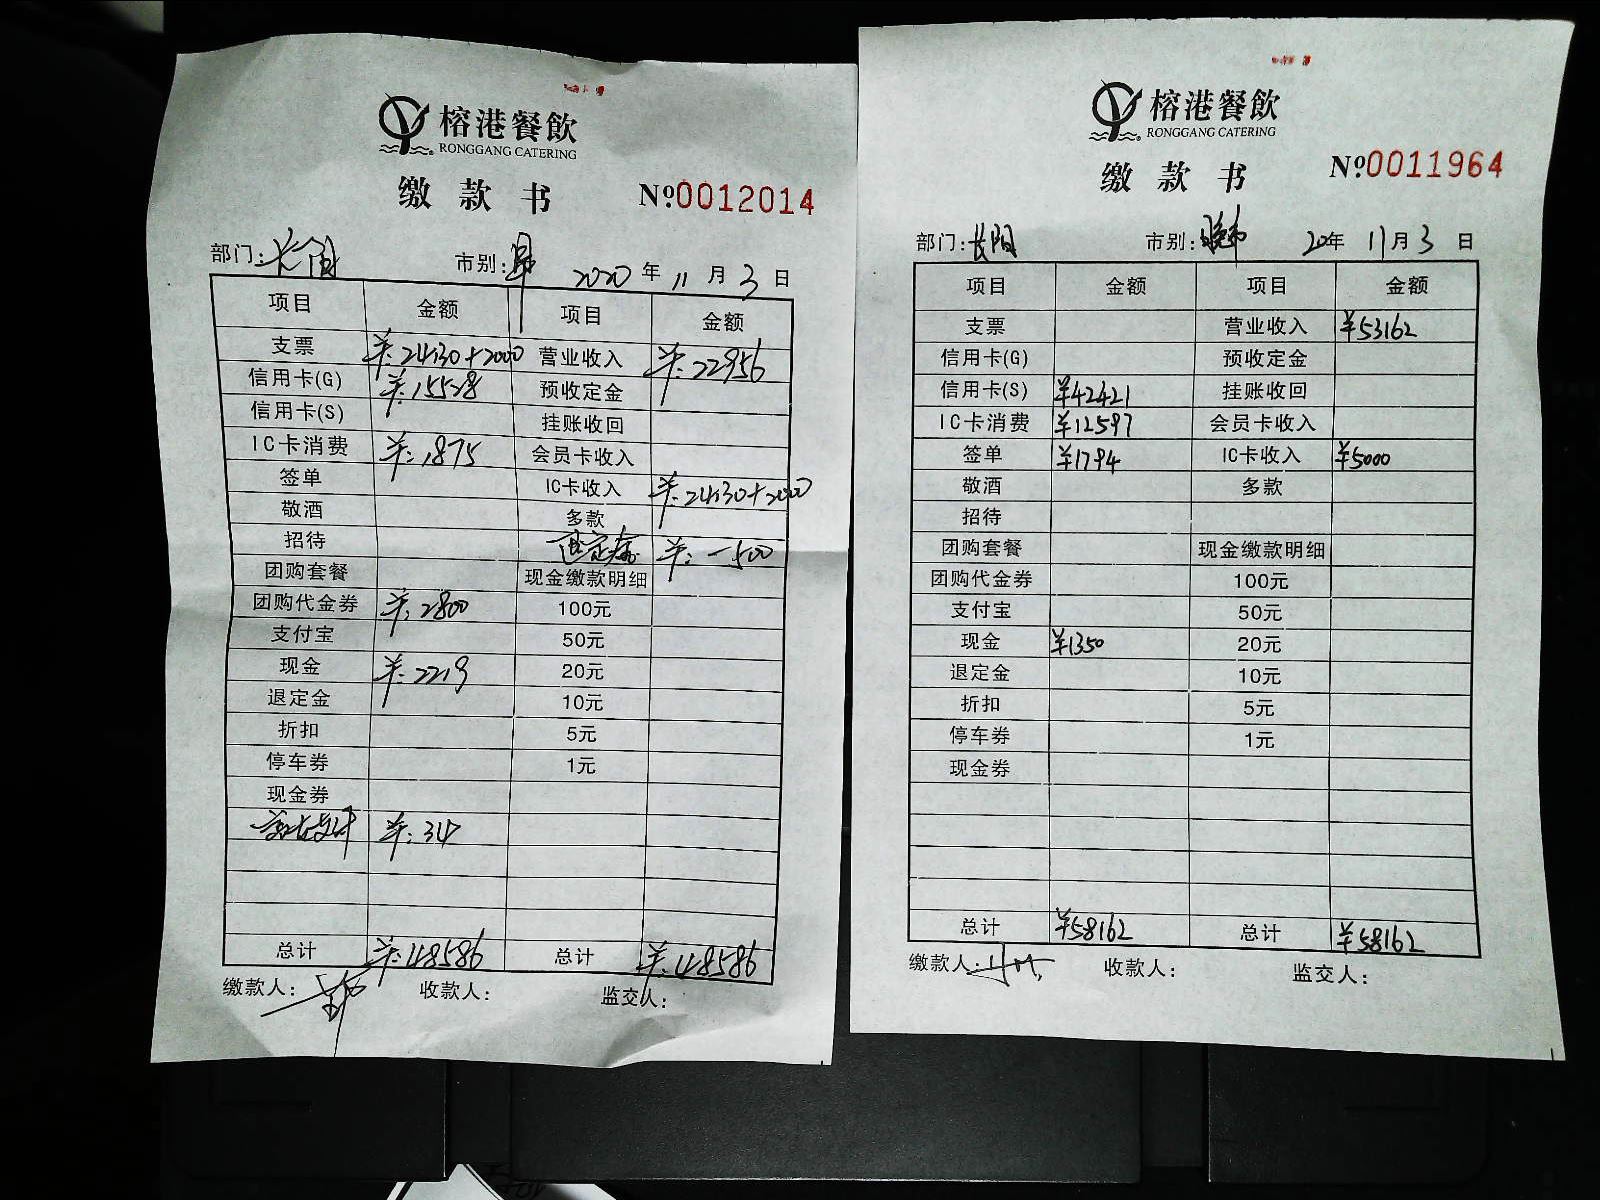 榕港餐飲
RONGGANG CATERING
缴款书 №0012014
部门: 市别: 2020年11月3日
项目 金额 项目 金额
支票 ¥:24130+2000 营业收入 ¥:22956
信用卡(G) ¥:15528 预收定金
信用卡(S) 挂账收回
IC卡消费 ¥:1875 会员卡收入
签单 IC卡收入 ¥:24130+2000
敬酒 多款
招待 退定金 ¥:-500
团购套餐 现金缴款明细
团购代金券 ¥:2800 100元
支付宝 50元
现金 ¥:2219 20元
退定金 10元
折扣 5元
停车券 1元
现金券
¥:34
总计 ¥:48586 总计 ¥:48586
缴款人: 收款人: 监交人:
榕港餐飲
RONGGANG CATERING
缴款书 №0011964
部门:长阳 市别:晚市 20年11月3日
项目 金额 项目 金额
支票 营业收入 ¥53162
信用卡(G) 预收定金
信用卡(S) ¥42421 挂账收回
IC卡消费 ¥12597 会员卡收入
签单 ¥1794 IC卡收入 ¥5000
敬酒 多款
招待
团购套餐 现金缴款明细
团购代金券 100元
支付宝 50元
现金 ¥1350 20元
退定金 10元
折扣 5元
停车券 1元
现金券
总计 ¥58162 总计 ¥58162
缴款人: 收款人: 监交人: